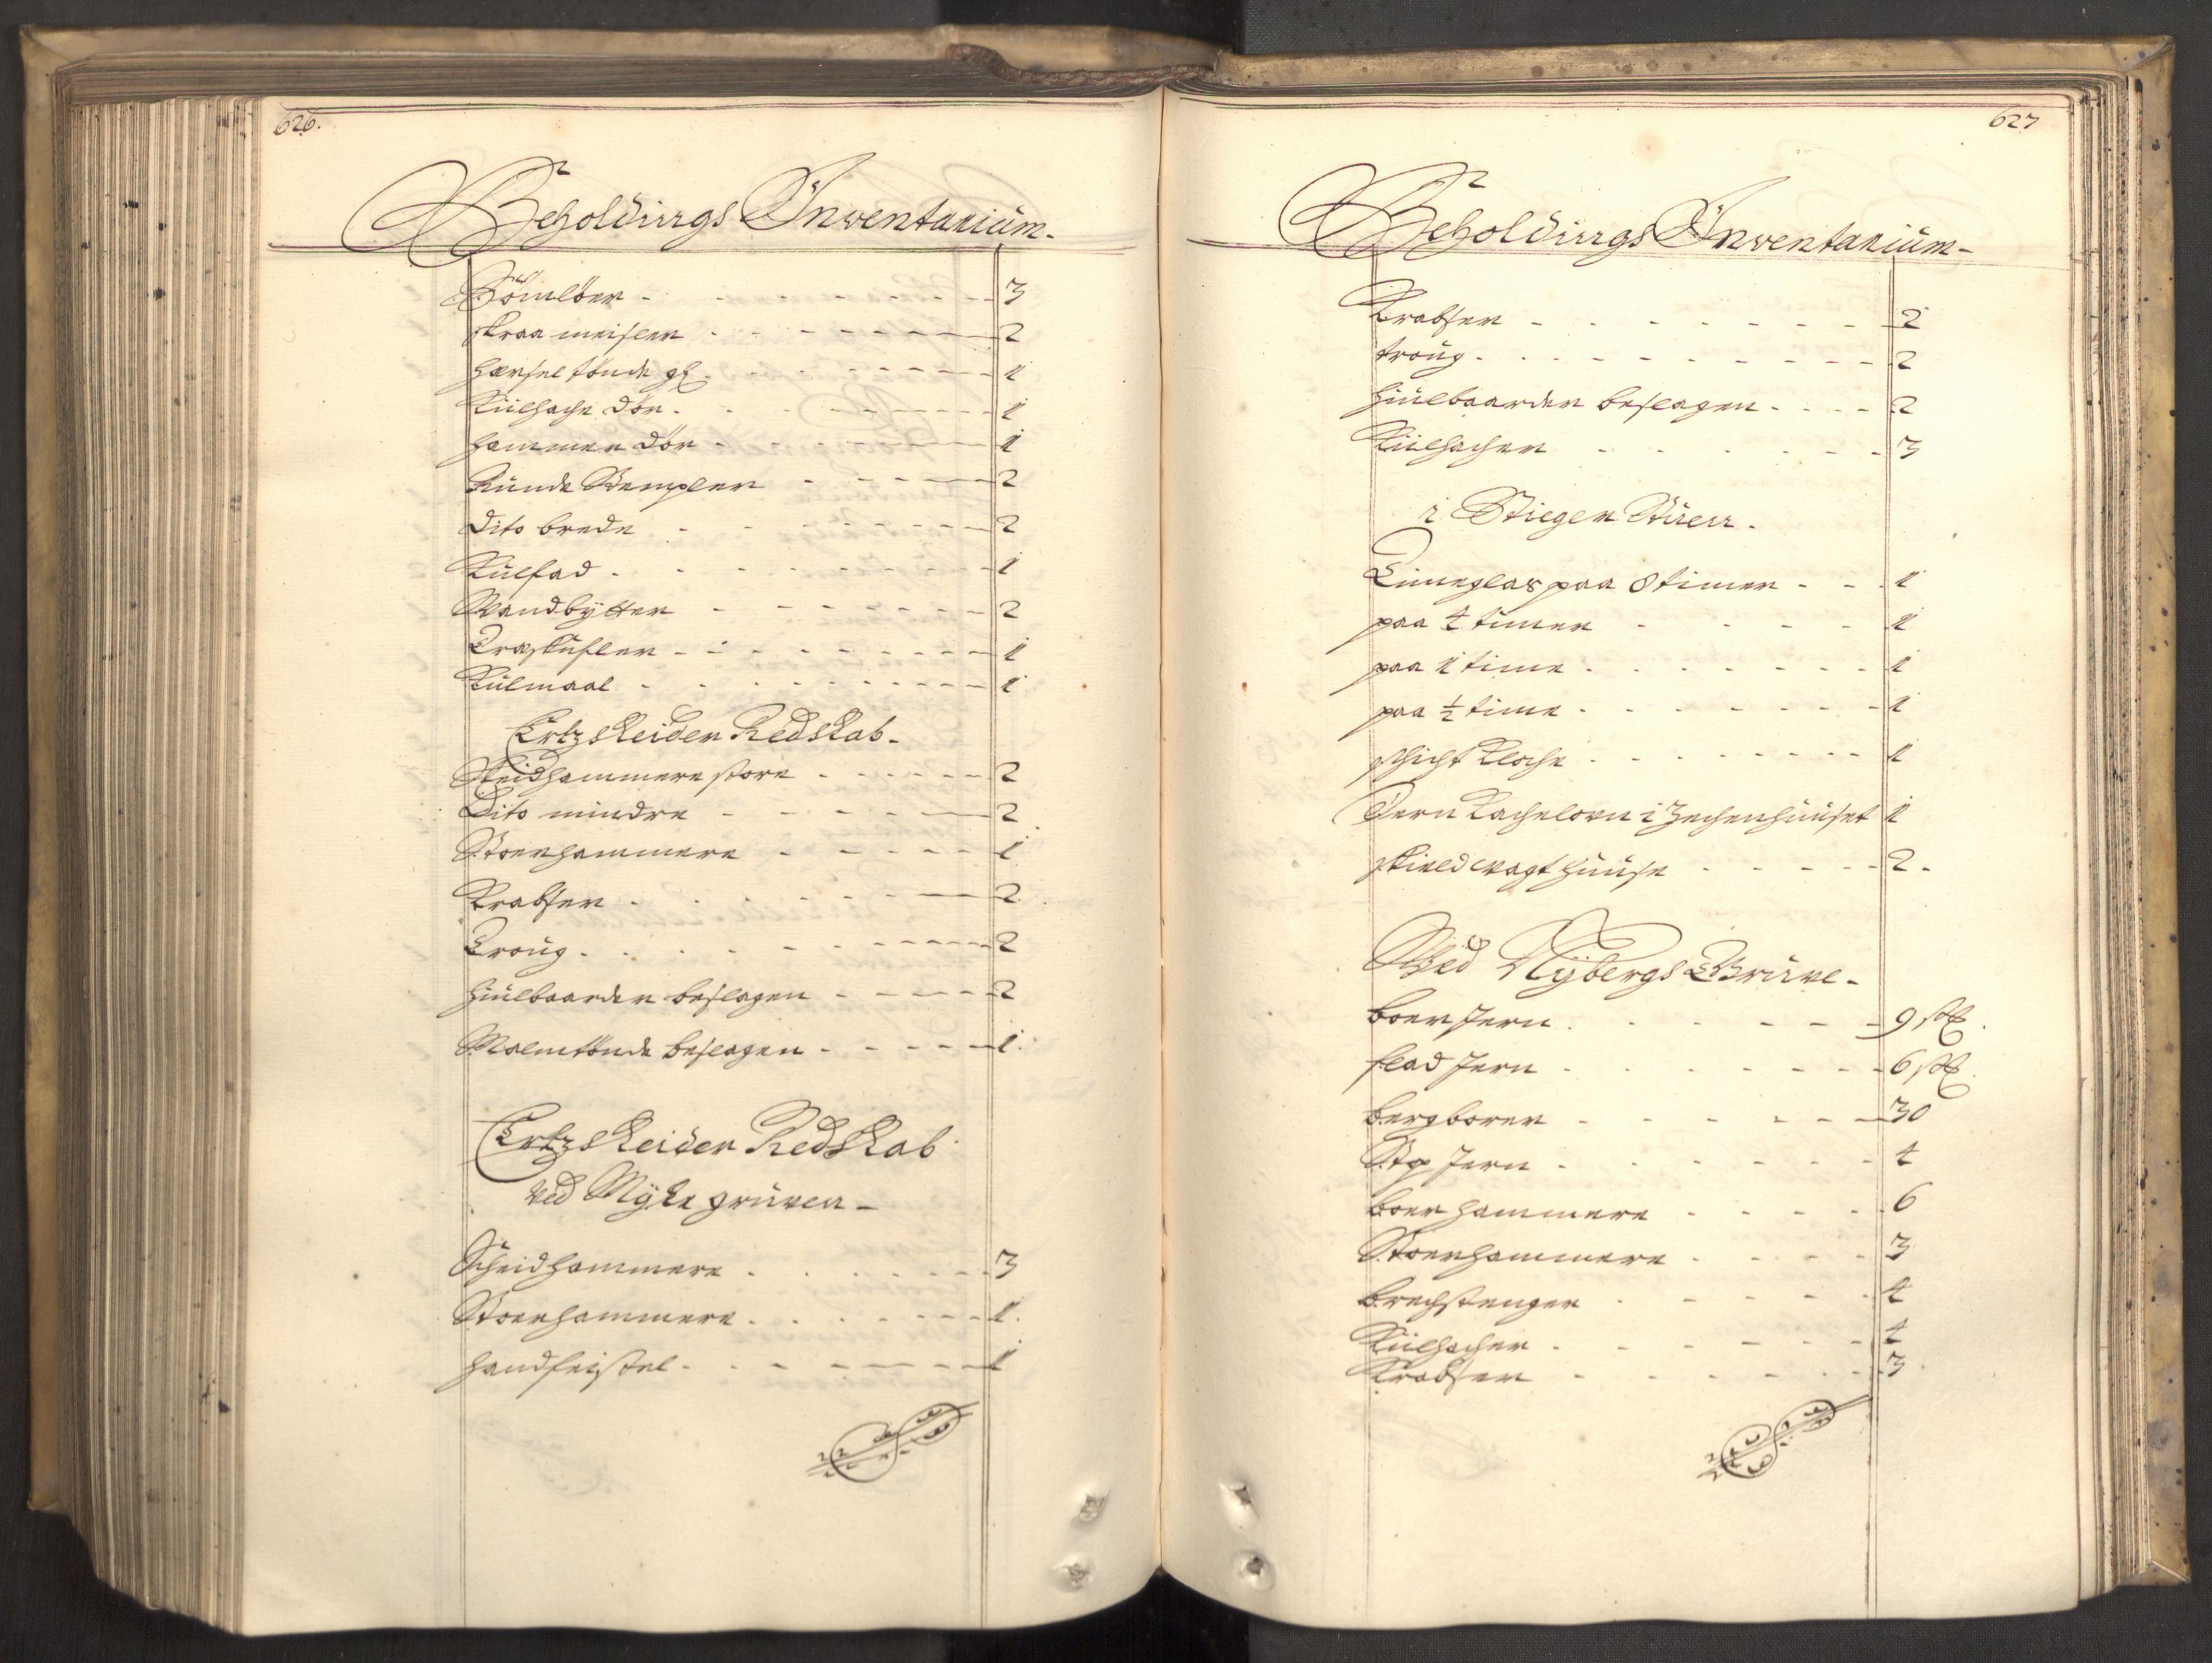 626.
Beholdings Inventarium-
Sömlöer - 3
skraa meisler - 2
hersel tönde gl. - 1
Külhache dör - 1
hammer dör - 1
Runde Stempler - 2
dito brede - 2
Külfad - 1
Vandbÿtter - 2
Traskufler - 1
Külmaal - 1
Ertzskeider Redskab-
Skeidhammere store - 2
Dito mindre - 2
Storhammere - 1
Krabser - 2
Troug - 2
hiülbaarder beslagen - 2
Malmtönde beslagen - 1
Ertzskeider Redskab
ved Mÿhe grüven-
Scheidhammere - 3
Storhammere - 1
handfeistel - 1
627
Beholdings Inventarium-
Krabser - 2
troug - 2
hiülbaarder beslagen - 2
Külhacher - 3
i Stiger Stuen.
Timeglas paa 8 timer - 1
paa 4 timer - 1
paa 1 time - 1
paa ½ time - 1
schicht Kloche - 1
Jern Kachelovn i Zechenhüüset 1
skieldvagt hüüse - 2.
Ved Nÿbergs Grüve-
boer Jern - 9
flad Jern - 6
bergborer - 30
Jern - 4
boer hammere - 6
Storhammere - 3
brechstenger - 4
Külhacher - 4
Krabser - 3